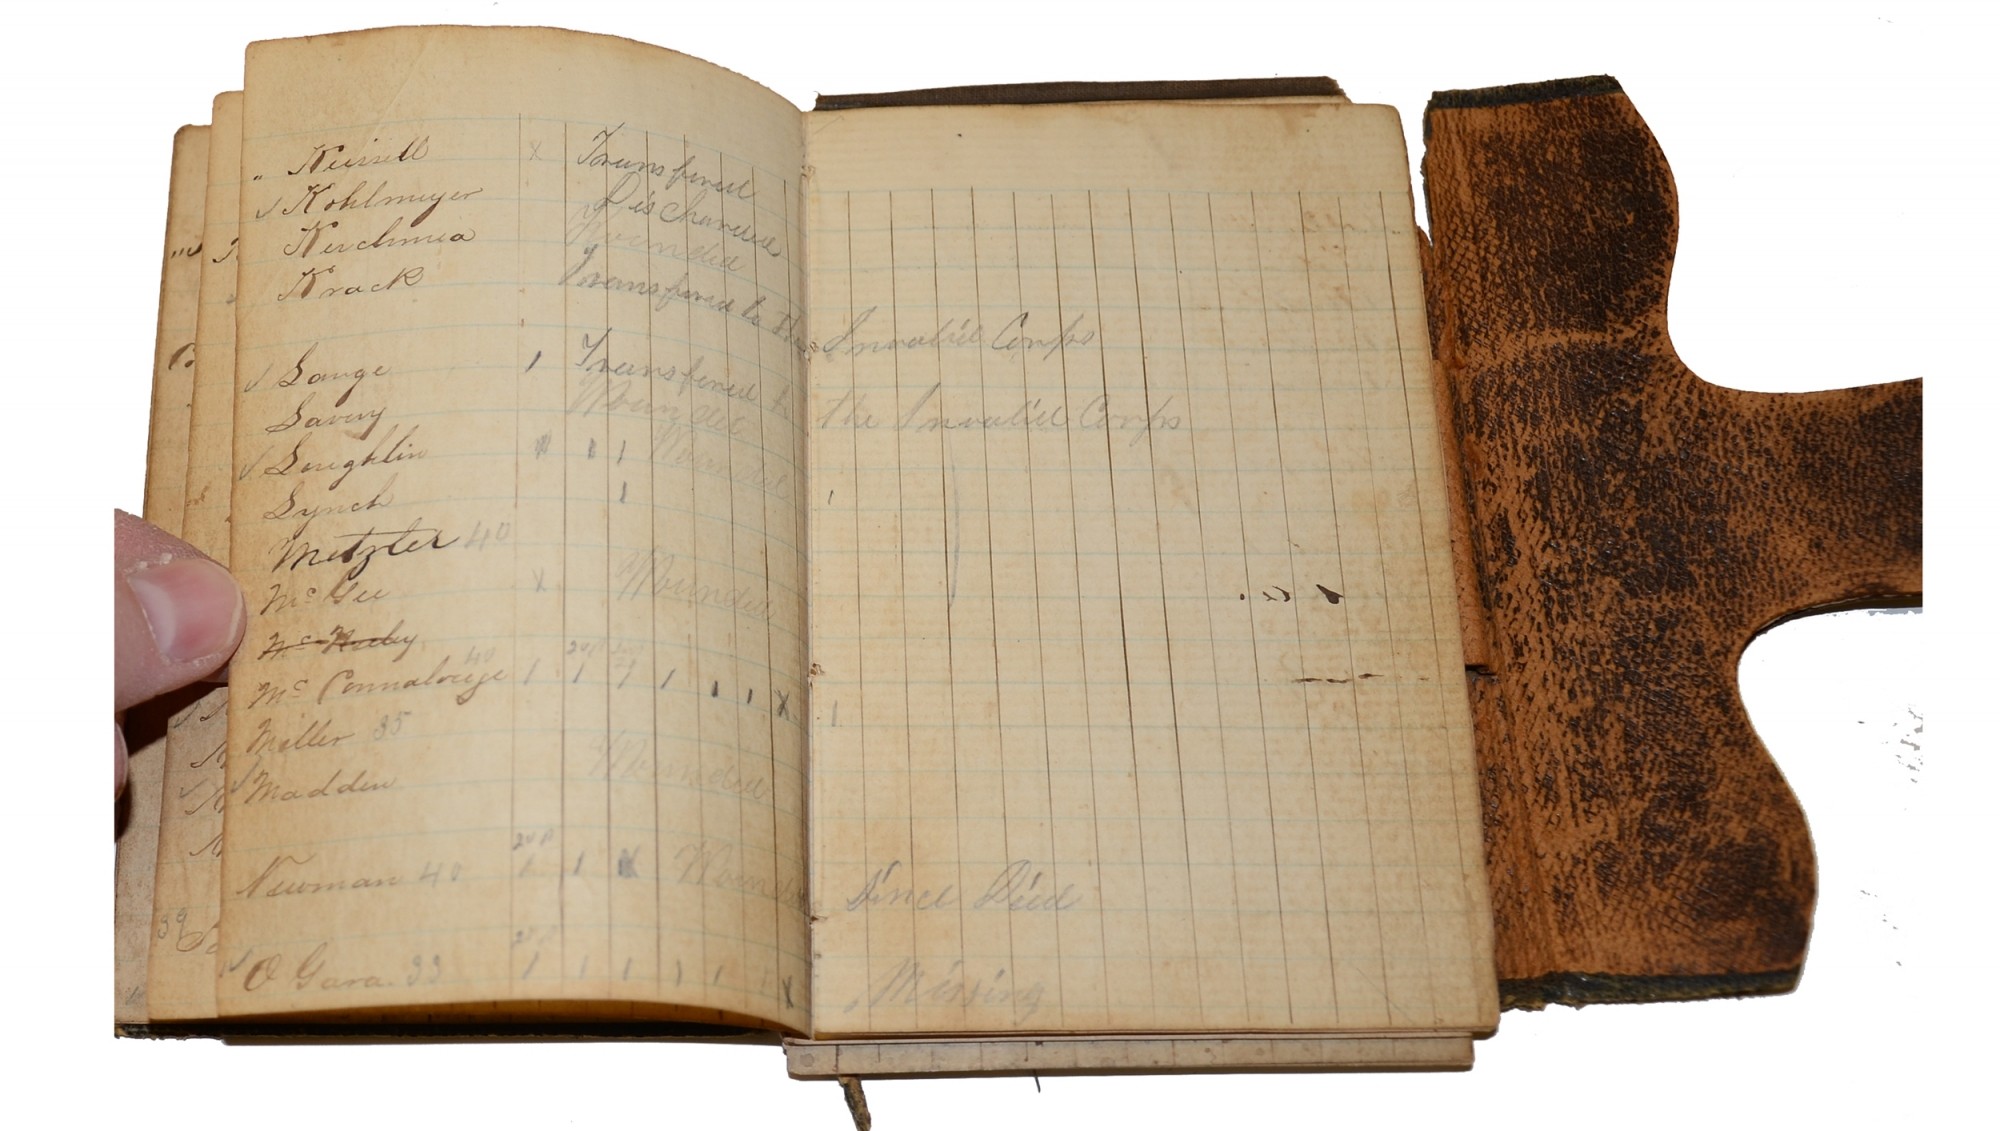 " Keissell x Transfered
✓ Kohlmeyer Discharged
Kerchmea Wounded
Krack Transfered to the Invalid Corps
✓ Lange 1 Transfered to the Invalid Corps
Lavery Wounded
✓ Loughlin x 1 1 Wounded
Lynch 1 1
Metzler 40
Mc Gee x Wounded
Mc
Mc Connalouge 40 1 1 1 1 1 1 x 1
Miller 35
✓ Madden Wounded
Newman 40 1 1 x Wounded Since Died
✓ O Gara. 33 1 1 1 1 1 1 x Missing
39